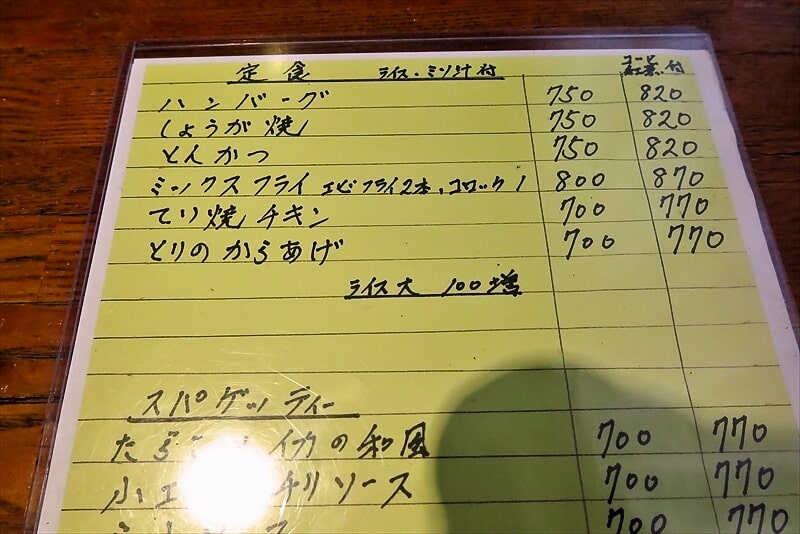 定食 ライス・ミソ汁付 コーヒ 紅茶付
ハンバーグ 750 820
しょうが焼 750 820
とんかつ 750 820
ミックスフライ エビフライ2本、コロッケ1 800 870
てり焼チキン 700 770
とりのからあげ 700 770
ライス大 100増
スパゲッティー
たら イカの和風 700 770
小エ チリソース 700 770
ミートソース 700 770